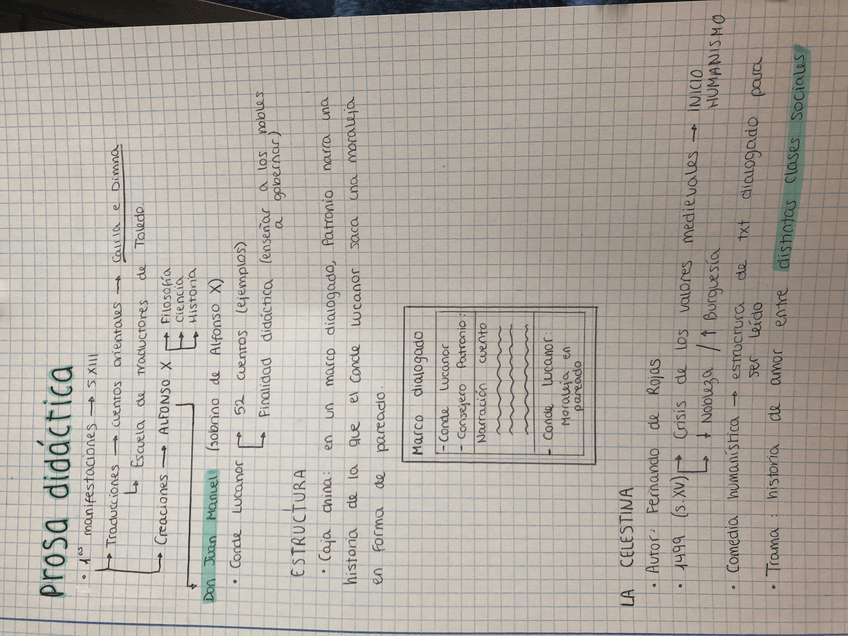 prosa didáctica
• 1as manifestaciones → S XIII
→ Traducciones → cuentos orientales → Calila e Dimna
↳ Escuela de traductores de Toledo
→ Creaciones → ALFONSO X → Filosofía
→ Ciencia
→ Historia
Don Juan Manuel (sobrino de Alfonso X)
• Conde Lucanor → 52 cuentos (ejemplos)
↳ Finalidad didáctica (enseñar a los nobles
a gobernar)
ESTRUCTURA
• Caja china: en un marco dialogado, Patronio narra una
historia de la que el Conde Lucanor saca una moraleja
en forma de pareado.
Marco dialogado
- Conde Lucanor
- Consejero Patronio:
Narración cuento
- Conde Lucanor
Moraleja en
pareado
LA CELESTINA
• Autor: Fernando de Rojas
• 1499 (S.XV) → Crisis de los valores medievales → INICIO
HUMANISMO
↳ ↓ Nobleza / ↑ Burguesía
• Comedia humanística → estructura de txt dialogado para
ser leído
• Trama: historia de amor entre distintas clases sociales